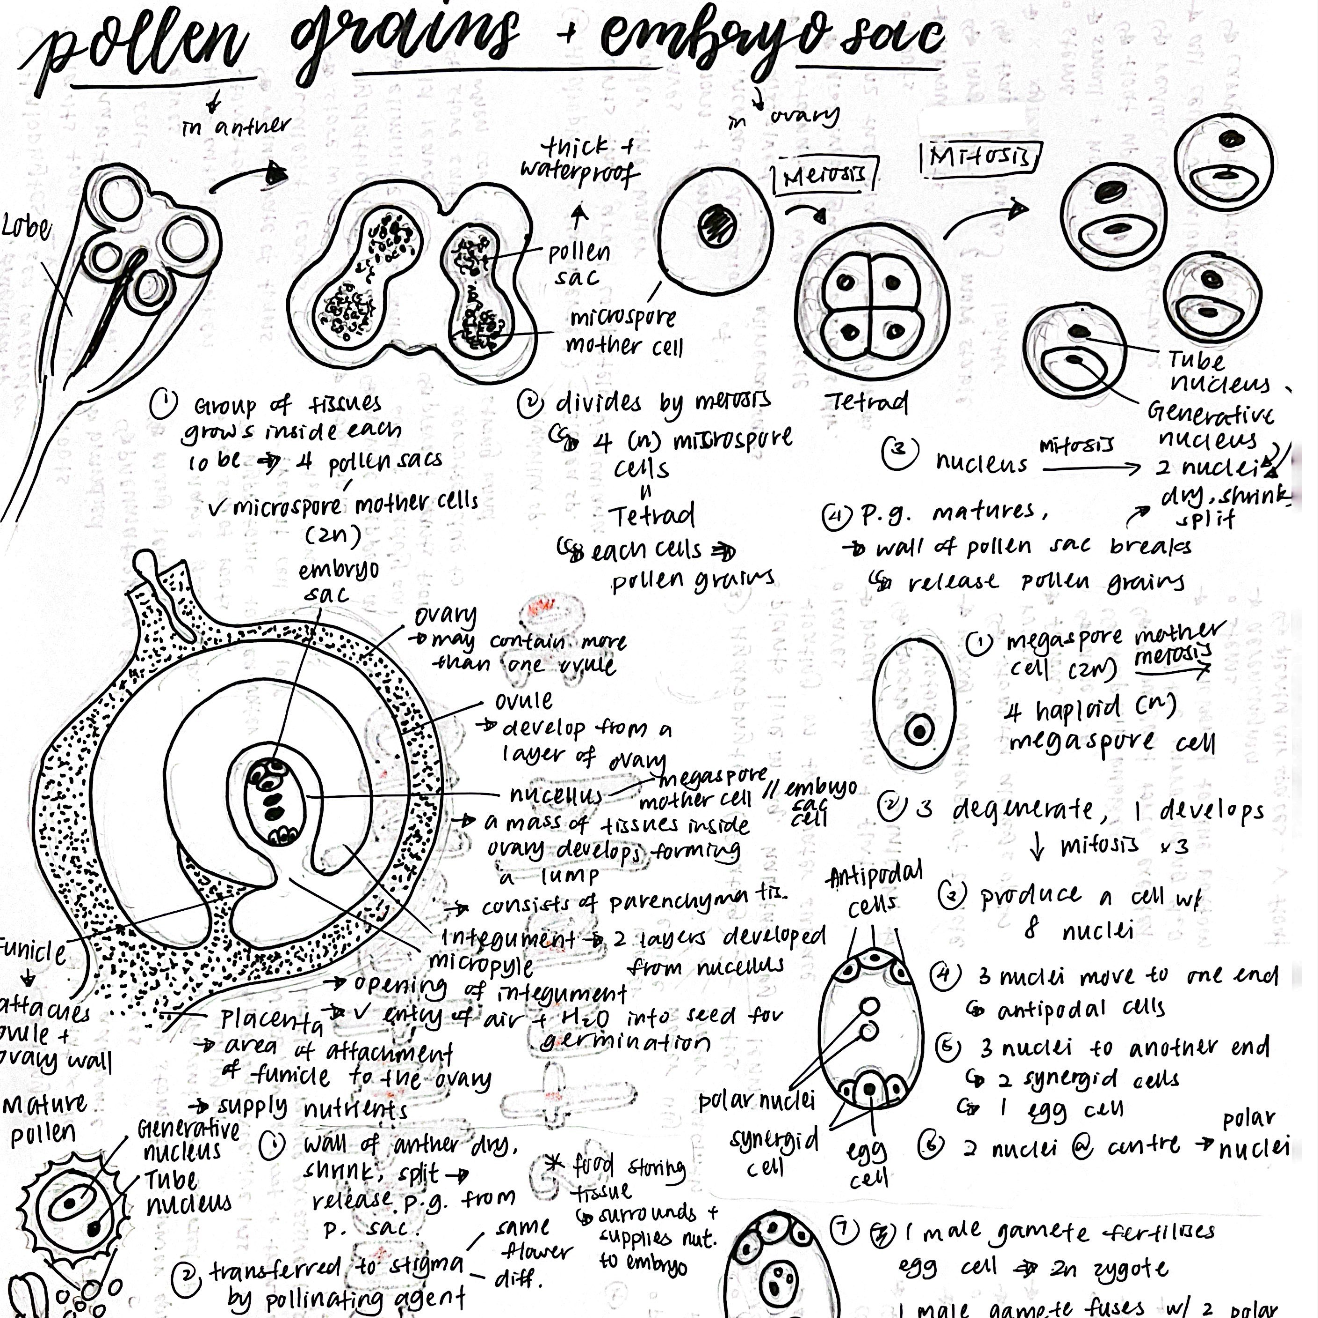 pollen grains + embryo sac
in anther
in ovary
Lobe
thick +
waterproof
pollen
sac
microspore
mother cell
Meiosis
Mitosis
Tetrad
Tube
nucleus
Generative
nucleus
① Group of tissues
grows inside each
lobe → 4 pollen sacs
✓ microspore mother cells
(2n)
② divides by meiosis
↳ 4 (n) microspore
cells
"
Tetrad
↳ each cells ⇒
pollen grains
③ nucleus mitosis → 2 nuclei
④ P.g. matures,
dry, shrink,
split
→ wall of pollen sac breaks
↳ release pollen grains
embryo
sac
ovary
→ may contain more
than one ovule
ovule
→ develop from a
layer of ovary
nucellus
megaspore
mother cell // embryo
sac
cell
→ a mass of tissues inside
ovary develops, forming
a lump
→ consists of parenchyma tis.
Integument → 2 layers developed
from nucellus
micropyle
→ opening of integument
→ ✓ entry of air + H₂O into seed for
germination
Funicle
attaches
ovule +
ovary wall
Placenta
→ area of attachment
of funicle to the ovary
→ supply nutrients
① megaspore mother
cell (2n) meiosis →
4 haploid (n)
megaspore cell
② 3 degenerate, 1 develops
↓ mitosis x3
③ produce a cell w/
8 nuclei
④ 3 nuclei move to one end
↳ antipodal cells
⑤ 3 nuclei to another end
↳ 2 synergid cells
↳ 1 egg cell
⑥ 2 nuclei @ centre → polar
nuclei
Antipodal
cells
polar nuclei
synergid
cell
egg
cell
Mature
pollen
Generative
nucleus
Tube
nucleus
① wall of anther dry,
shrink, split →
release p.g. from
p. sac.
② transferred to stigma
by pollinating agent
same
flower
diff.
* food storing
tissue
↳ surrounds +
supplies nut.
to embryo
⑦ 1 male gamete fertilises
egg cell ⇒ 2n zygote
1 male gamete fuses w/ 2 polar